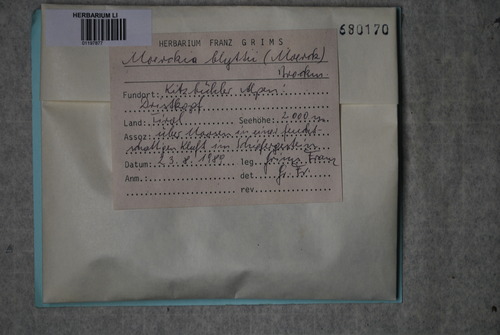 HERBARIUM LI
01197677
690170
HERBARIUM FRANZ GRIMS
Moerckia blyttii (Moerck)
Brockm.
Fundort: Kitzbühler Alpen:
Land: Tirol Seehöhe: 2000 m
Assoz: über Moosen in einer feucht
schattigen Kluft im Schiefergestein
Datum: 23.8.1980 leg. Grims Franz
Anm.: det. Gr. Fr.
rev.